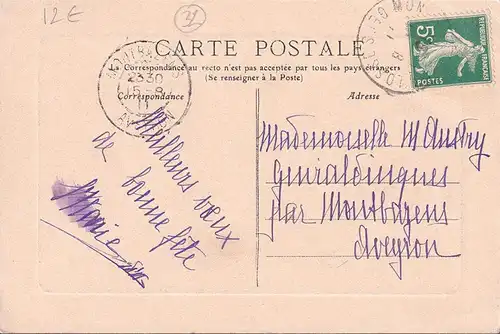 12 E
CARTE POSTALE
La Correspondance au recto n'est pas acceptée par tous les pays étrangers
(Se renseigner à la Poste)
Correspondance
Adresse
Meilleurs vœux
de bonne fête
Marie
Mademoiselle M Austry
par Montbazens
Aveyron
23 30
15 - 8
11
MON
5c
REPUBLIQUE FRANCAISE
POSTES